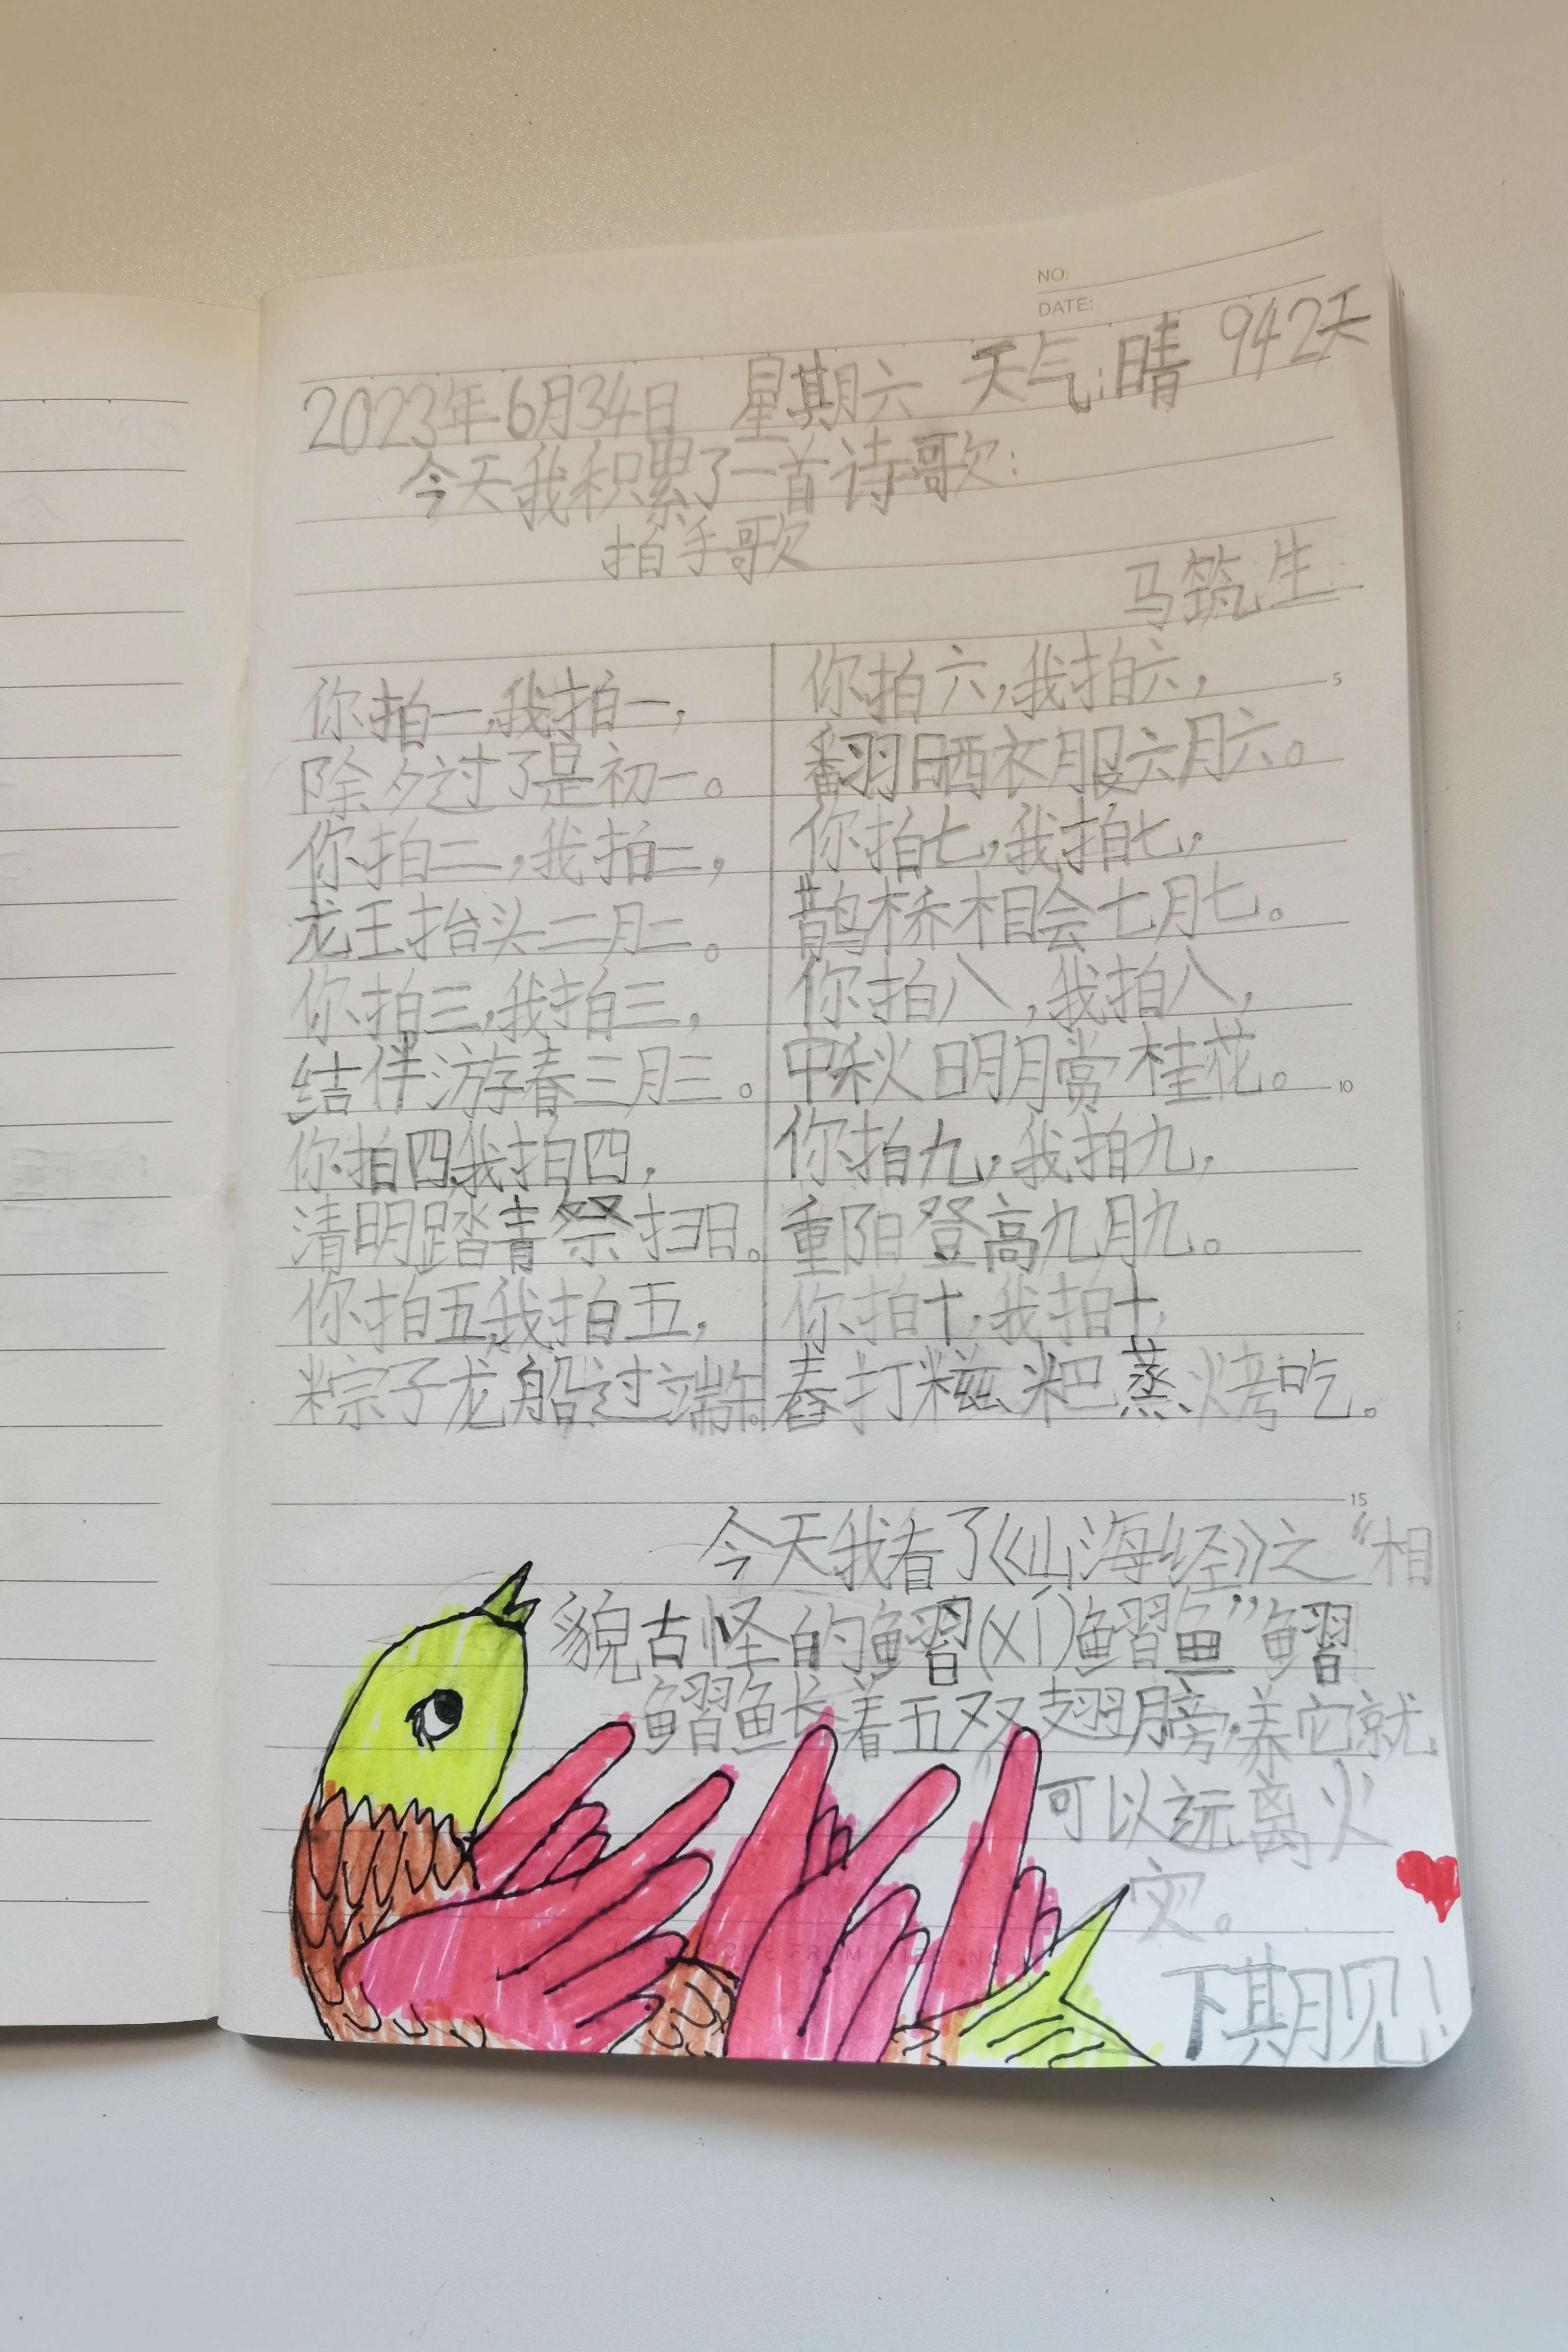 NO:
DATE:
2023年6月34日 星期六 天气:晴 942天
今天我积累了一首诗歌:
拍手歌
马筑生
你拍一,我拍一,
除夕过了是初一。
你拍二,我拍二,
龙王抬头二月二。
你拍三,我拍三,
结伴游春三月三。
你拍四,我拍四,
清明踏青祭扫日。
你拍五,我拍五,
粽子龙船过端午。
你拍六,我拍六,
翻晒衣服六月六。
你拍七,我拍七,
鹊桥相会七月七。
你拍八,我拍八,
中秋明月赏桂花。
你拍九,我拍九,
重阳登高九月九。
你拍十,我拍十,
舂打糍粑蒸烤吃。
5
10
15
今天我看了《山海经》之“相
貌古怪的鳛(xí)鳛鱼”鳛
鳛鱼长着五双翅膀,养它就
可以远离火
灾。
下期见!